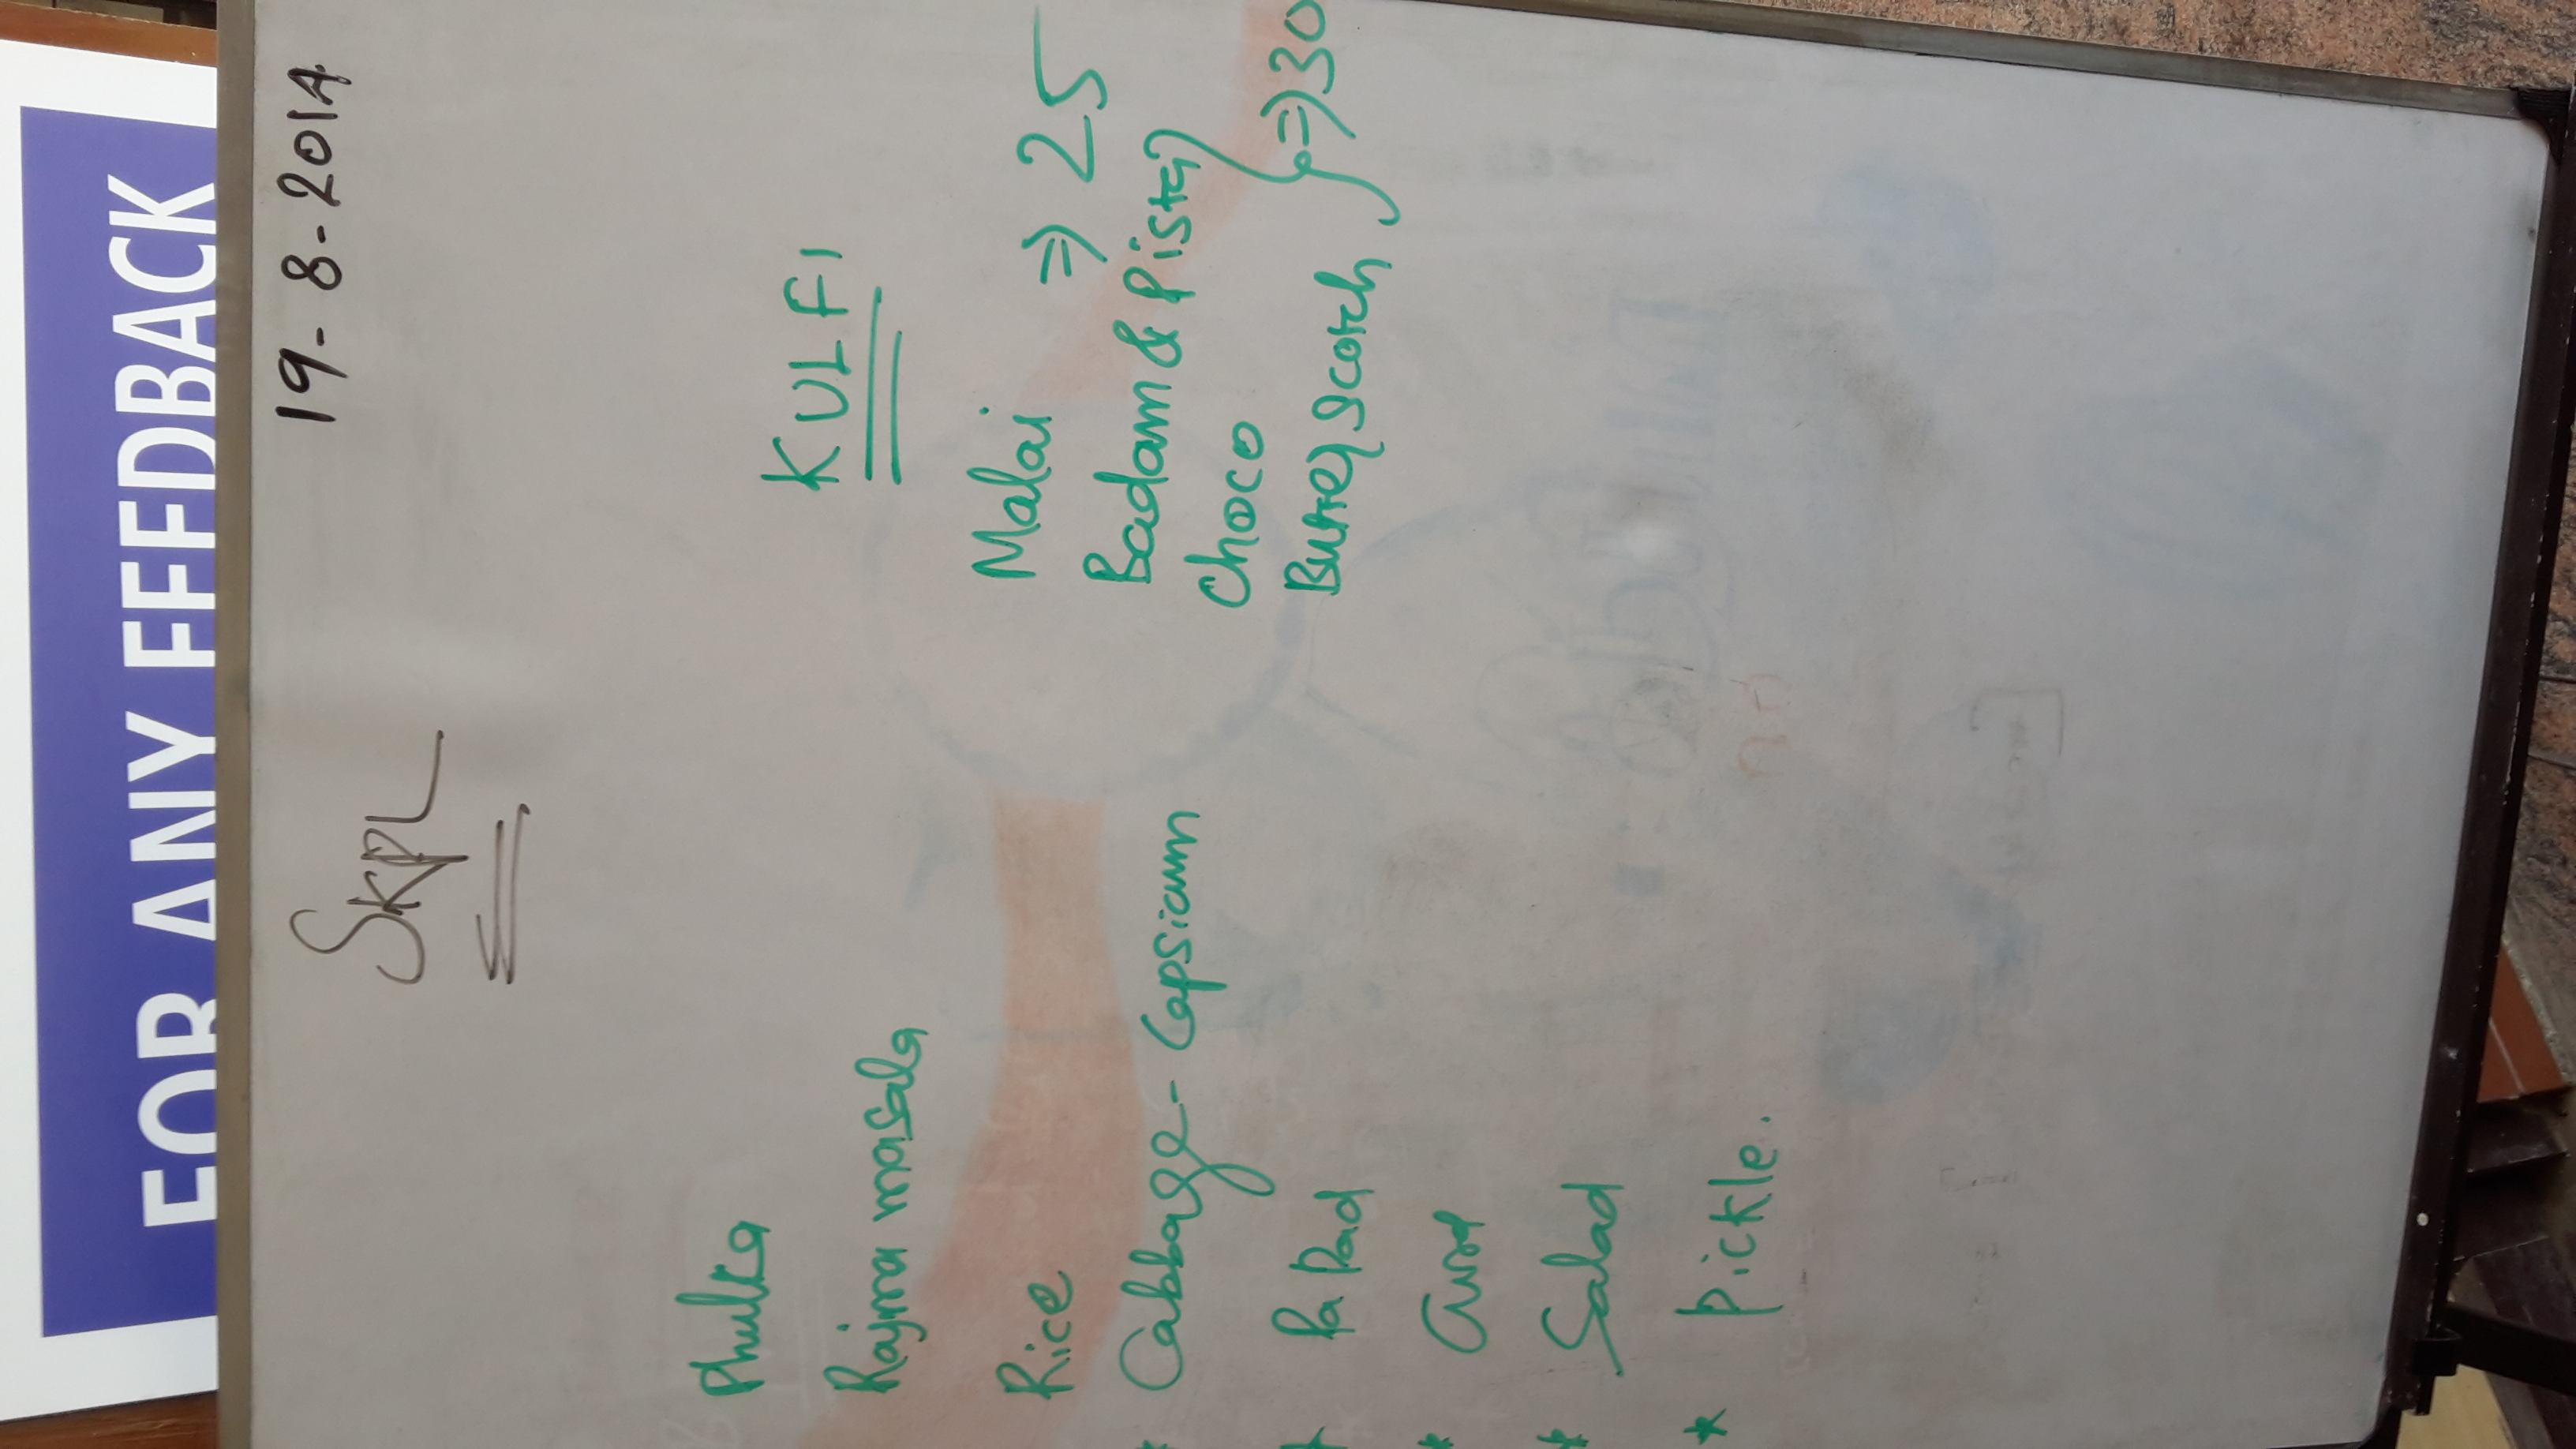 FOR ANY FEEDBACK
19-8-2014
SKPL
Phulka
Rajma masala
Rice
* Cabbage - Capsicum
* Papad
* Curd
* Salad
* Pickle.
KULFI
Malai ⇒ 25
Badam & Pista
Choco
Butter Scotch } ⇒ 30